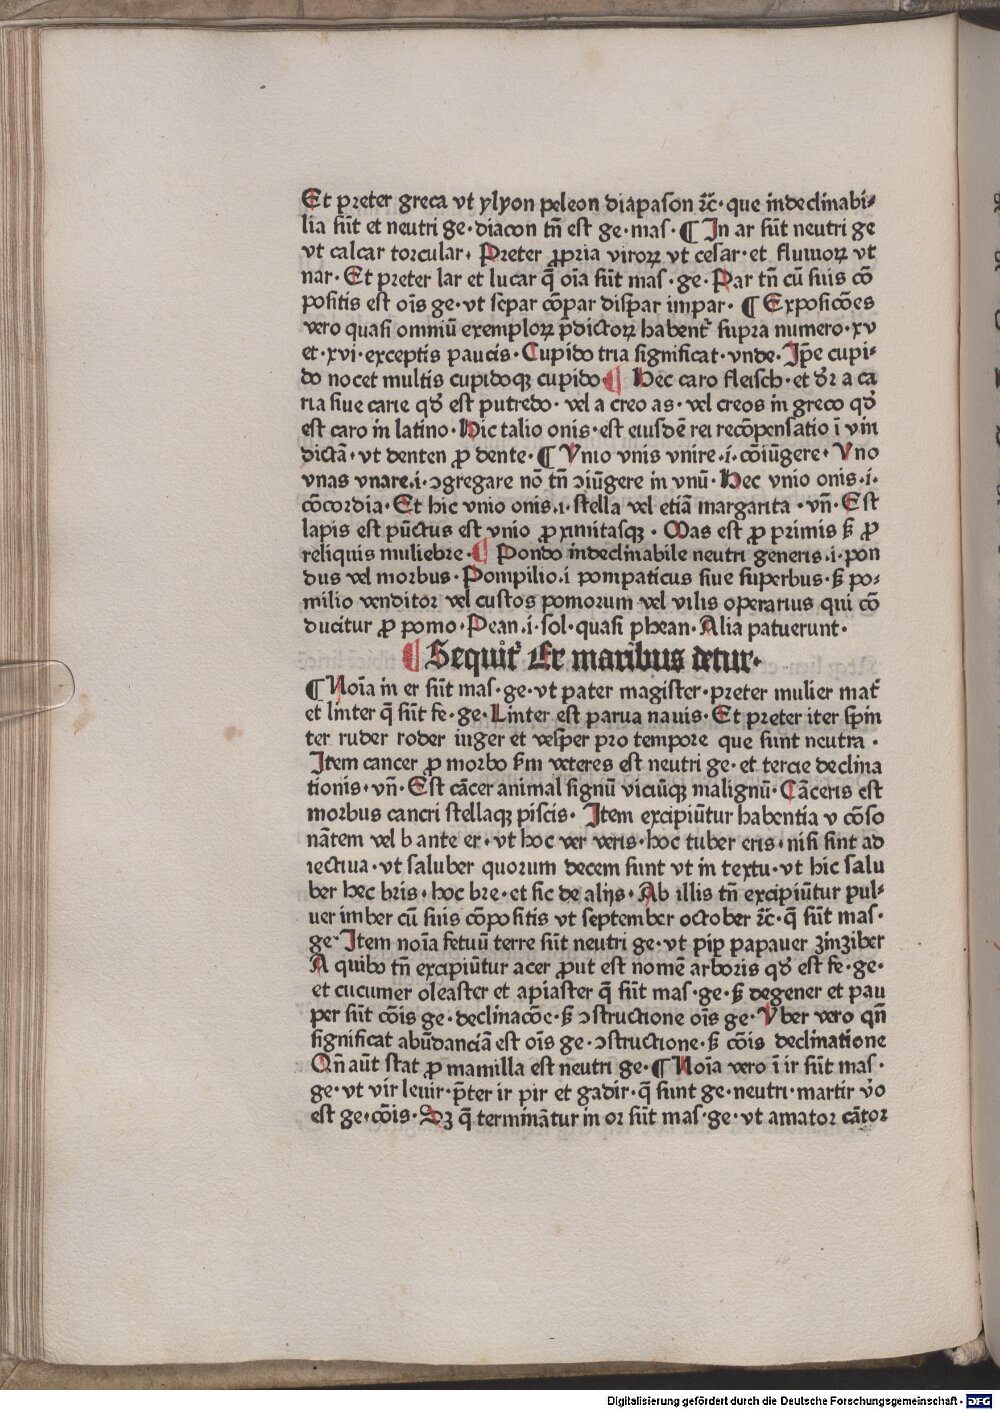 Et preter greca vt ylyon peleon diapason ⁊c̄· que indeclinabi⸗
lia sūt et neutri ge· diacon tn̄ est ge· mas· ¶ In ar sūt neutri ge
vt calcar torcular· Preter ꝓpria viroꝝ vt cesar· et fluuioꝝ vt
nar· Et preter lar et lucar q̄ oīa sūt mas· ge· Par tn̄ cū suis cō
positis est oīs ge· vt separ cōpar dispar impar· ¶ Exposicōes
vero quasi omniū exemploꝝ p̄dictoꝝ habent᷑ supra numero· xv
et· xvi· exceptis paucis· Cupido tria significat· vnde· Ip̄e cupi⸗
do nocet multis cupidoqꝫ cupido ¶ Hec caro fleisch· et dr̄ a ca
ria siue carie qd̄ est putredo· vel a creo as· vel creos in greco qd̄
est caro in latino· Hic talio onis· est eiusdē rei recōpensatio ī vin
dictā· vt denten ꝓ dente· ¶ Vnio vnis vnire· i· cōiūgere· Vno
vnas vnare· i· ↄgregare nō tn̄ ↄiūgere in vnū· Hec vnio onis· i·
cōcordia· Et hic vnio onis· i· stella vel etiā margarita· vn̄· Est
lapis est pūctus est vnio ꝓximitasqꝫ· Mas est ꝓ primis sꝫ ꝓ
reliquis muliebre· ¶ Pondo indeclinabile neutri generis· i· pon
dus vel morbus· Pompilio· i pompaticus siue superbus· sꝫ po⸗
milio venditor vel custos pomorum vel vilis operarius qui cō
ducitur ꝓ pomo· Pean· i· sol· quasi phean· Alia patuerunt·
¶ Sequit᷑ Er maribus detur·
¶ Noīa in er sūt mas· ge· vt pater magister· preter mulier mat᷑
et linter q̄ sūt fe· ge· Linter est parua nauis· Et preter iter spin
ter ruder roder iuger et vesper pro tempore que sunt neutra·
Item cancer ꝓ morbo sm̄ veteres est neutri ge· et tercie declina
tionis· vn̄· Est cācer animal signū viciūqꝫ malignū· Cāceris est
morbus cancri stellaqꝫ piscis· Item excipiūtur habentia v cōso
nātem vel b ante er· vt hoc ver veris· hoc tuber eris· nisi sint ad
iectiua· vt saluber quorum decem sunt vt in textu· vt hic salu
ber hec bris· hoc bre· et sic de alijs· Ab illis tn̄ excipiūtur pul⸗
uer imber cū suis cōpositis vt september october ⁊c̄· q̄ sūt mas·
ge· Item noīa fetuū terre sūt neutri ge· vt pip papauer zinziber
A quibo tn̄ excipiūtur acer ꝓut est nomē arboris qd̄ est fe· ge·
et cucumer oleaster et apiaster q̄ sūt mas· ge· sꝫ degener et pau
per sūt cōis ge· declinacōe· sꝫ ↄstructione oīs ge· Vber vero qn̄
significat abūdanciā est oīs ge· ↄstructione· sꝫ cōis declinatione
Qn̄ aūt stat ꝓ mamilla est neutri ge· ¶ Noīa vero ī ir sūt mas·
ge· vt vir leuir· p̄ter ir pir et gadir· q̄ sunt ge· neutri· martir v̄o
est ge· cōis· Sꝫ q̄ terminātur in or sūt mas· ge· vt amator cātor
Digitalisierung gefördert durch die Deutsche Forschungsgemeinschaft - DFG